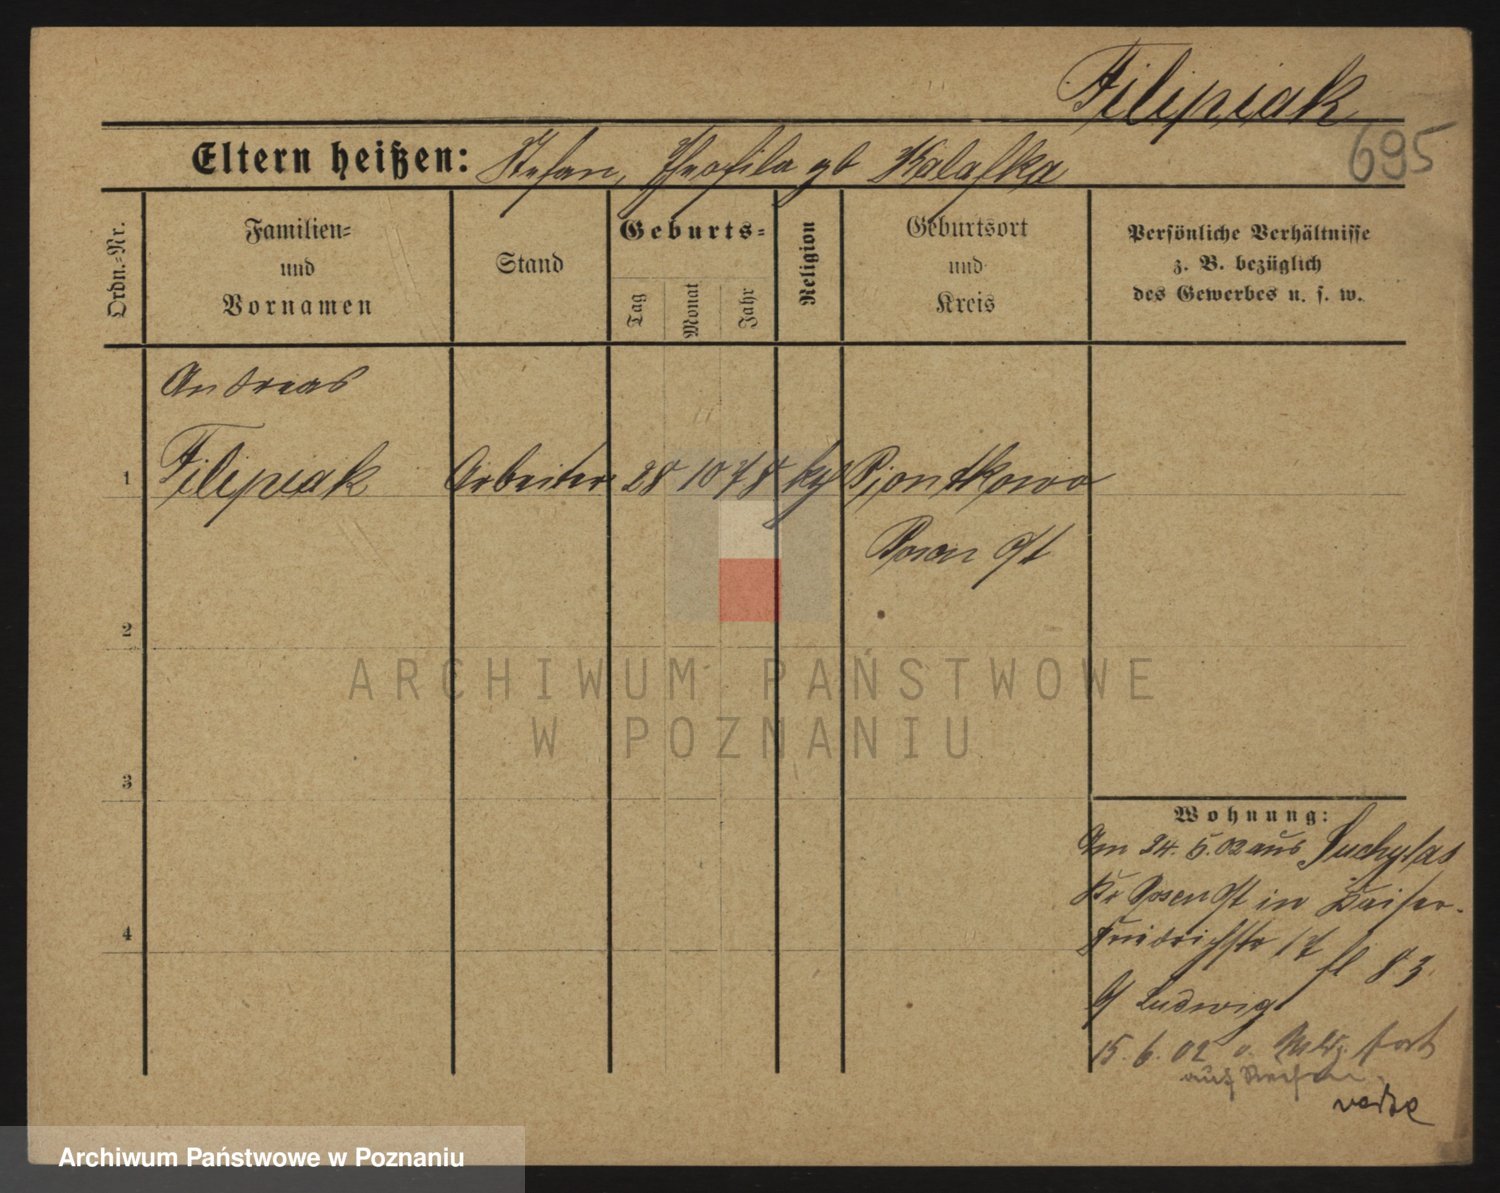 Filipiak
695
Eltern heißen: Stefan, Theofila gb Kalafka
Ordn.=Nr.
Familien=
und
Vornamen
Stand
Geburts=
Tag
Monat
Jahr
Religion
Geburtsort
und
Kreis
Persönliche Verhältnisse
z. B. bezüglich
des Gewerbes u. s. w.
Andreas
1 Filipiak Arbeiter 28 10 78 kg Piontkowo
Posen Ost
2
3
4
Wohnung:
Am 24. 5. 02 aus Suchylas
Kr Posen Ost in Kaiser-
Friedrichstr 17 fl 83
b/ Ludwig
15. 6. 02 o. Meldg. fort
auf Reisen
ARCHIWUM PAŃSTWOWE
W POZNANIU
Archiwum Państwowe w Poznaniu